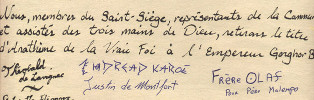 Nous, membres du Saint-Siège, représentants de la Commun
et assistés des trois mains de Dieu, retirons le titre
d'Anathème de la Vraie Foi à l'Empereur Gorghor B
Thibald KAROË
de Langue Justin de Montfort
Frère OLAF
Pour Père Malempo